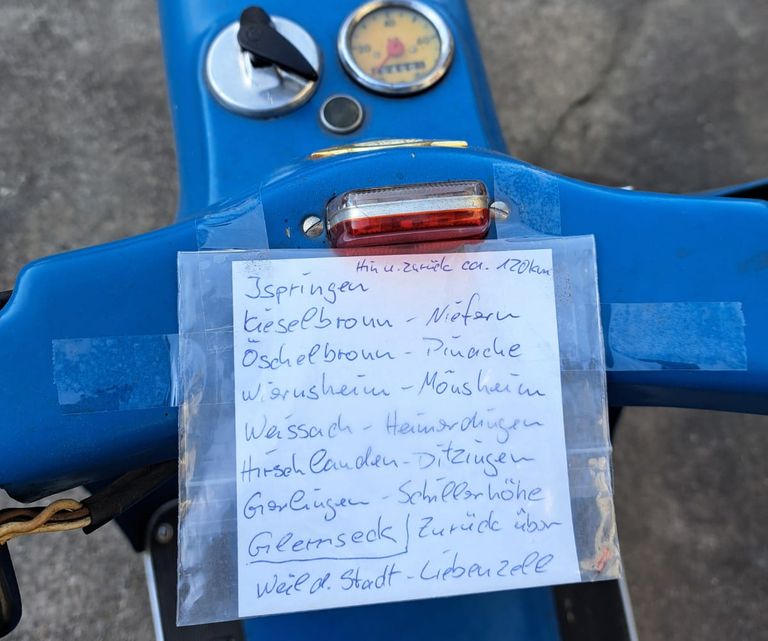 20
40
60
Hin u. zurück ca. 120km
Ispringen
Kieselbronn - Niefern
Öschelbronn - Pinache
Wiernsheim - Mönsheim
Weissach - Heimerdingen
Hirschlanden - Ditzingen
Gerlingen - Schillerhöhe
Glemseck / Zurück über
Weil d. Stadt - Liebenzell